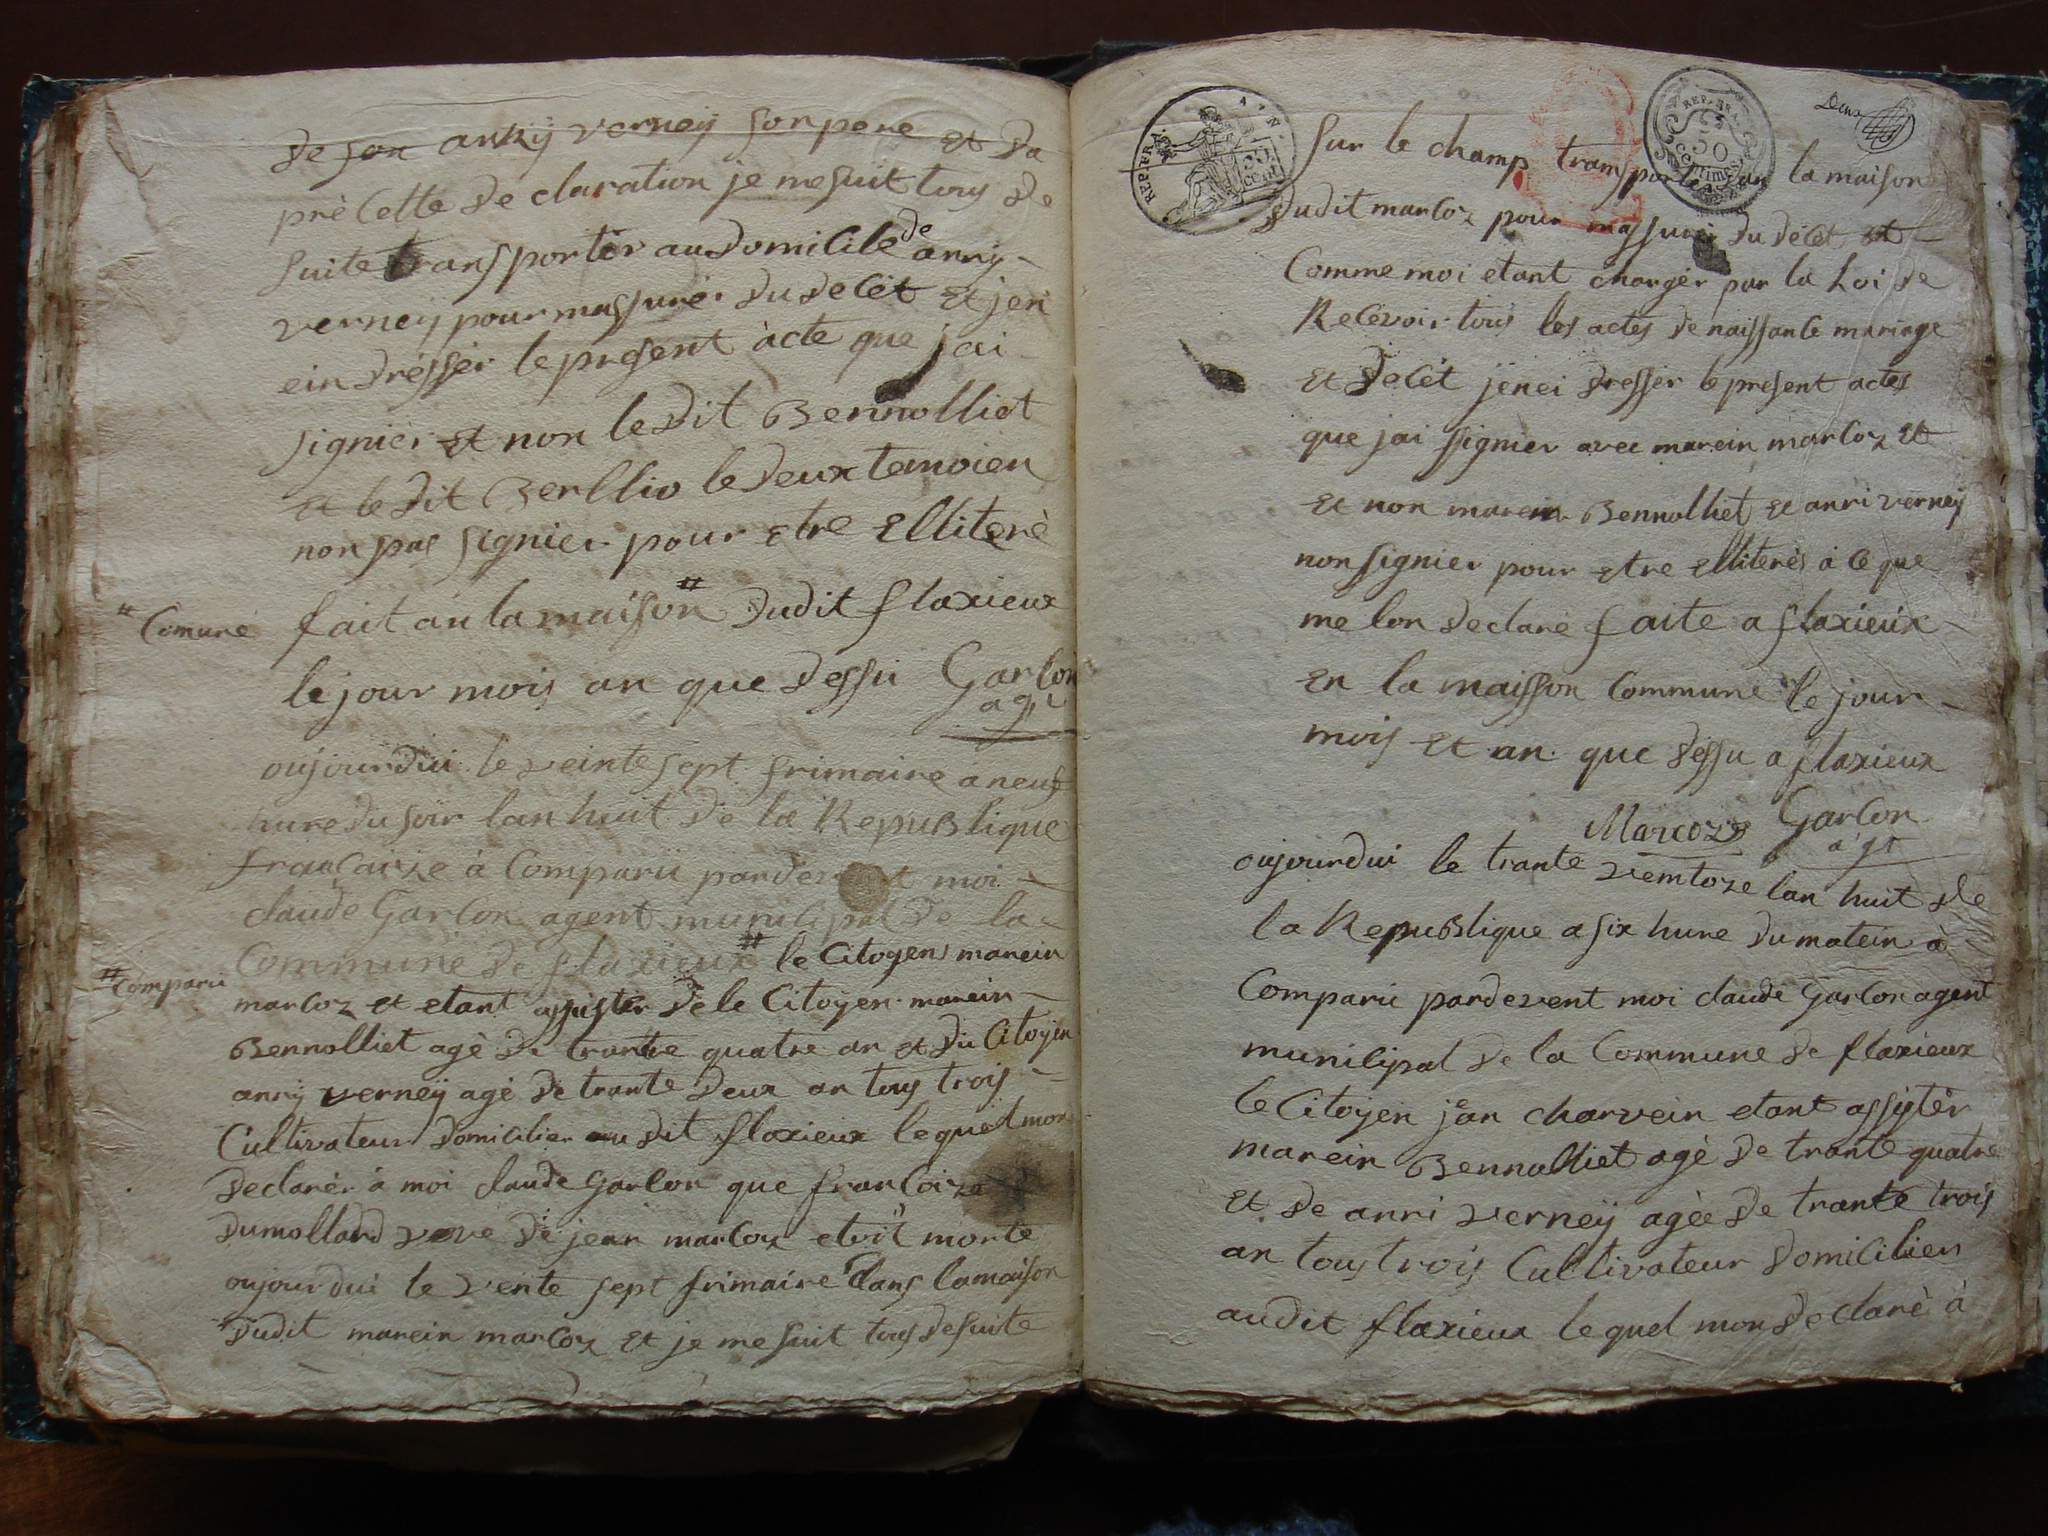 de son anrÿ verneÿ son pere et da
prè Cette de claration je me suit tous de
suite transporter au domicile de anrÿ
verneÿ pour massurer du decét et jen
ein drésser le present àcte que jai
signier et non le dit Bennolliet
et le dit Berllio le deux temoien
non pas signier pour etre elliterè
# Comune
fait an la maison # dudit flaxieux
le jour mois an que dessu Garcon
agt
oujourdui le veinte sept frimaire a neuf
hure du soir lan huit de la Republique
francaize à Comparu pardevent moi
claude Garcon agent municipal de la
# Comparu
Commune de flaxieux # le Citoyens marein
marcoz et etant assister de le Citoÿen marein
Bennolliet agè de trantre quatre an et du Citoÿen
anrÿ verneÿ agè de trante deux an tous trois
Cultivateur domicilier audit flaxieux lequel mon
declarér à moi claude Garcon que francoize
dumollard veve de jean marcoz etoit morte
oujourdui le vente sept frimaire dans la maison
dudit marein marcoz et je me suit tous de suite
REP. FRA.
50 cent
REP. FRA.
50
centimes
Deux
sur le champ transporter an la maison
dudit marcoz pour massurer du décét et
Comme moi etant chargér par la Loi de
Recévoir tous les actes de naissance mariage
et décét jenei dresser le present actes
que jai signier avec marein marcoz et
et non marein Bennolliet et anri verneÿ
non signier pour etre elliterés à ce que
me lon declaré faite a flaxieux
en la maisson Commune le jour
mois et an que dessu a flaxieux
Marcoz Garcon
agt
oujourdui le trante ventoze lan huit de
la Republique a six hure du matein à
Comparu pardevent moi claude Garcon agent
municipal de la Commune de flaxieux
le Citoÿen jean charvein etant assystér
marein Bennolliet agè de trante quatre
et de anri verneÿ agèe de trante trois
an tous trois Cultivateur domicilier
audit flaxieux lequel mon declarè à